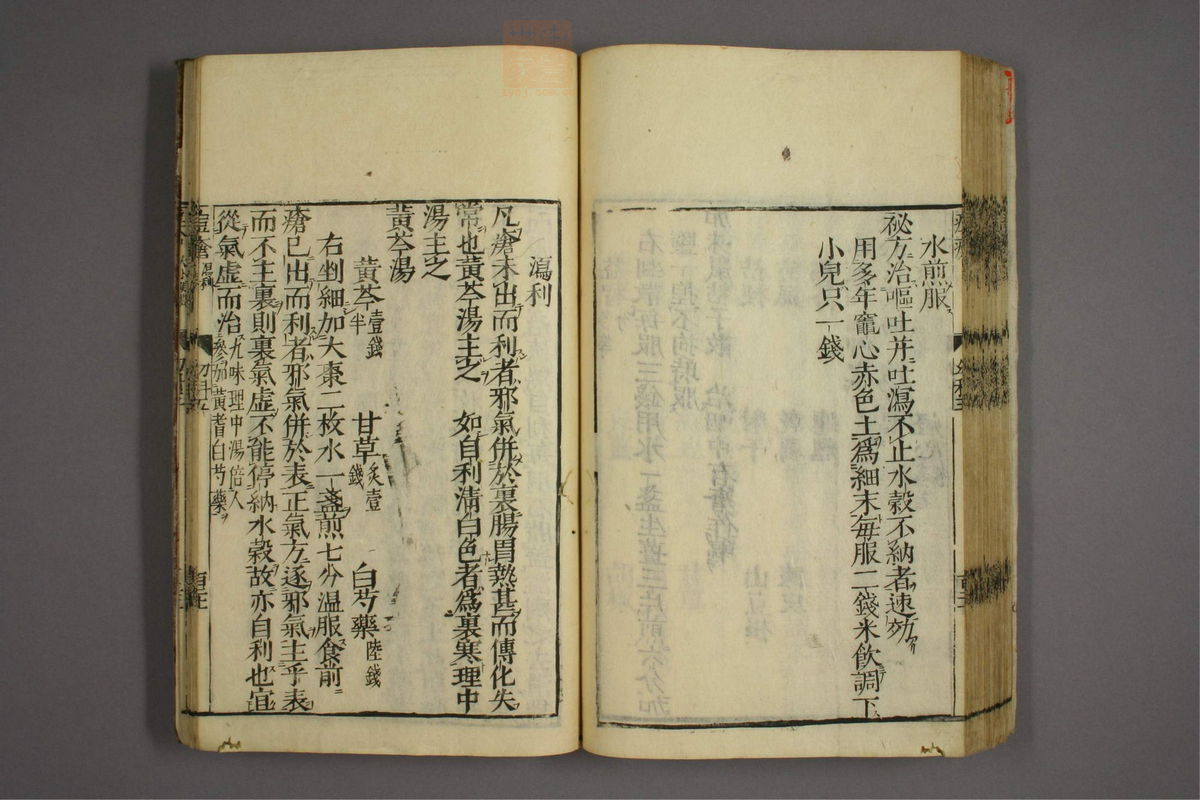 水煎服
秘方治嘔吐并吐瀉不止水穀不納者速効
用多年竈心赤色土為細末每服二錢米飲調下
小兒只一錢
瀉利
凡瘡未出而利者邪氣併於裏腸胃熱甚而傳化失
常也黃芩湯主之 如自利清白色者為裏寒理中
湯主之
黃芩湯
黃芩壹錢半 甘草炙壹錢 白芍藥陸錢
右剉細加大棗二枚水一盞煎七分溫服食前
瘡已出而利者邪氣併於表正氣方逐邪氣主乎表
而不主裏則裏氣虛不能停納水穀故亦自利也宜
從氣虛而治九味理中湯倍人參加黃耆白芍藥
痘瘡